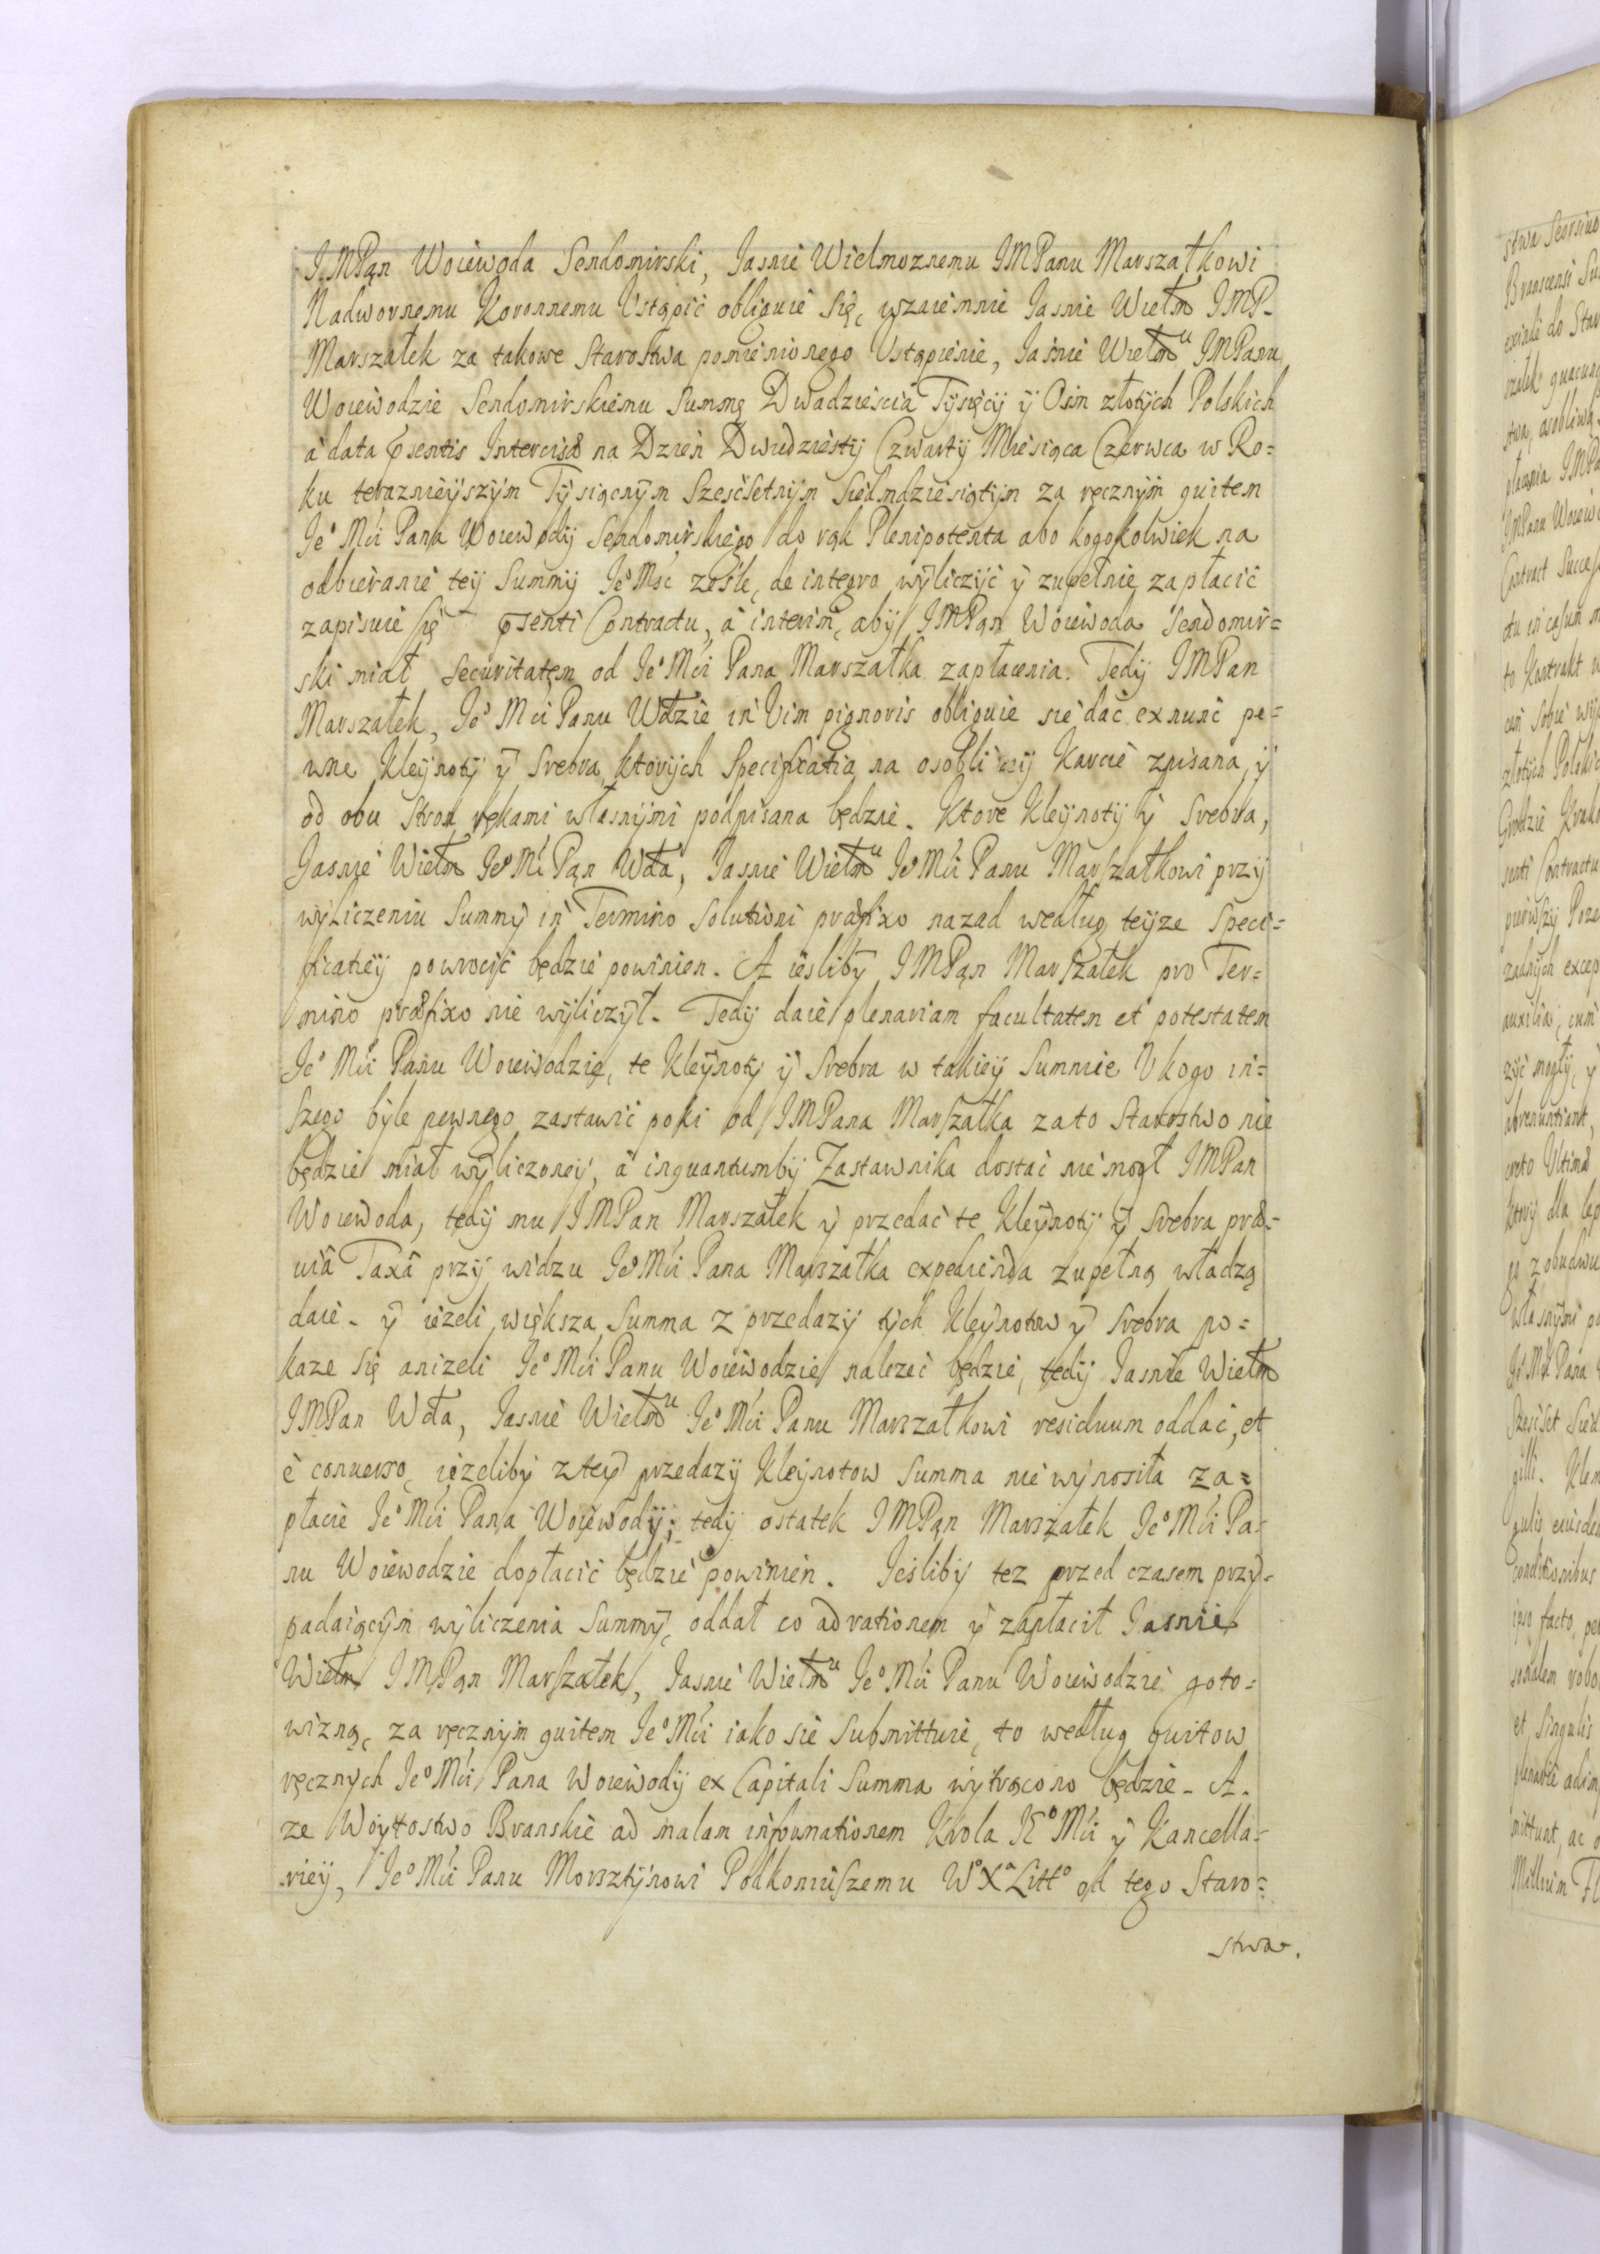 IMPąn Woiewoda Sendomirski, Jasnie Wielmoznemu IMPanu Marszałkowi
Nadwornemu Koronnemu Vstąpić obliguie się, wzaiemnie Jasnie Wielm IMP.
Marszałek za takowe Starostwa pomienionego Vstąpienie, Jaśnie Wielmu IMPanu
Woiewodzie Sendomirskiemu Summę Dwadziescia Tysięcy y Osm złotych Polskich
à data psentis Intercisæ na Dzień Dwudziesty Czwarty Miesiąca Czerwca w Ro=
ku teraznieyszym Tysiącnym Sześćsetnym Siedmdziesiątym za ręcznym quitem
Jeo Mći Pana Woiewody Sendomirskiego do rąk Plenipotenta abo kogokolwiek na
odbieranie tey Summy Jeo Mść ześle, de integro wyliczyć y zupełnie zapłacić
zapisuie się psenti Contractu, à interim, aby IMPąn Woiewoda Sendomir=
ski miał securitatem od Jeo Mći Pana Marszałka zapłacenia. Tedy IMPan
Marszałek, Jeo Mći Panu Wdzie in Vim pignoris obliguie sie dać ex nunc pe=
wne Kleynoty y Srebra, ktorych Specificatia na osobliwey Karcie zpisana y
od obu Stron rękami własnymi podpisana będzie. Ktore Kleynoty y Srebra,
Jasnie Wielm Jeo Mć Pąn Wda, Jasnie Wielmu Jeo Mći Panu Marszałkowi przy
wyliczeniu Summy in Termino Solutioni præfixo nazad według teyze Speci=
ficatiey powrocić będzie powinien. A iesliby IMPąn Marszałek pro Ter=
mino præfixo nie wyliczył. Tedy daie plenariam facultatem et potestatem
Jeo Mći Panu Woiewodzie, te Kleynoty y Srebra w takiey Summie V kogo in=
szego byle pewnego zastawić poki od IMPana Marszałka za to Starostwo nie
będzie miał wyliczoney, à inquantumby Zastawnika dostać nie mogł IMPan
Woiewoda, tedy mu IMPan Marszałek y przedać te Kleynoty y Srebra præ=
uiâ Taxâ przy widzu Jeo Mći Pana Marszałka expedienda zupełną władzą
daie. y iezeli większa Summa z przedazy tych Kleynotow y Srebra po=
kaze się anizeli Jeo Mći Panu Woiewodzie nalezeć będzie, tedy Jasnie Wielm
IMPan Wda, Jasnie Wielmu Jeo Mći Panu Marszałkowi residuum oddać, et
è conuerso, iezeliby z tey przedazy Kleynotow Summa nie wynosiła za=
płacie Jeo Mći Pana Woiewody; tedy ostatek IMPąn Marszałek Jeo Mći Pa=
nu Woiewodzie dopłacić będzie powinien. Jeśliby tez przed czasem przy=
padaiącym wyliczenia Summy, oddał co ad rationem y zapłacił Jasnie
Wielm IMPąn Marszałek, Jasnie Wielmu Jeo Mći Panu Woiewodzie goto=
wizną, za ręcznym quitem Jeo Mći iako sie submittuie, to według quitow
ręcznych Jeo Mći Pana Woiewody ex Capitali Summa wytrącono będzie. A.
ze Woytostwo Branskie ad malam informationem Krola JEo Mći y Kancella=
riey, Jeo Mći Panu Morsztynowi Podkoniuszemu Wo Xa Litto od tego Staro=
stwa.